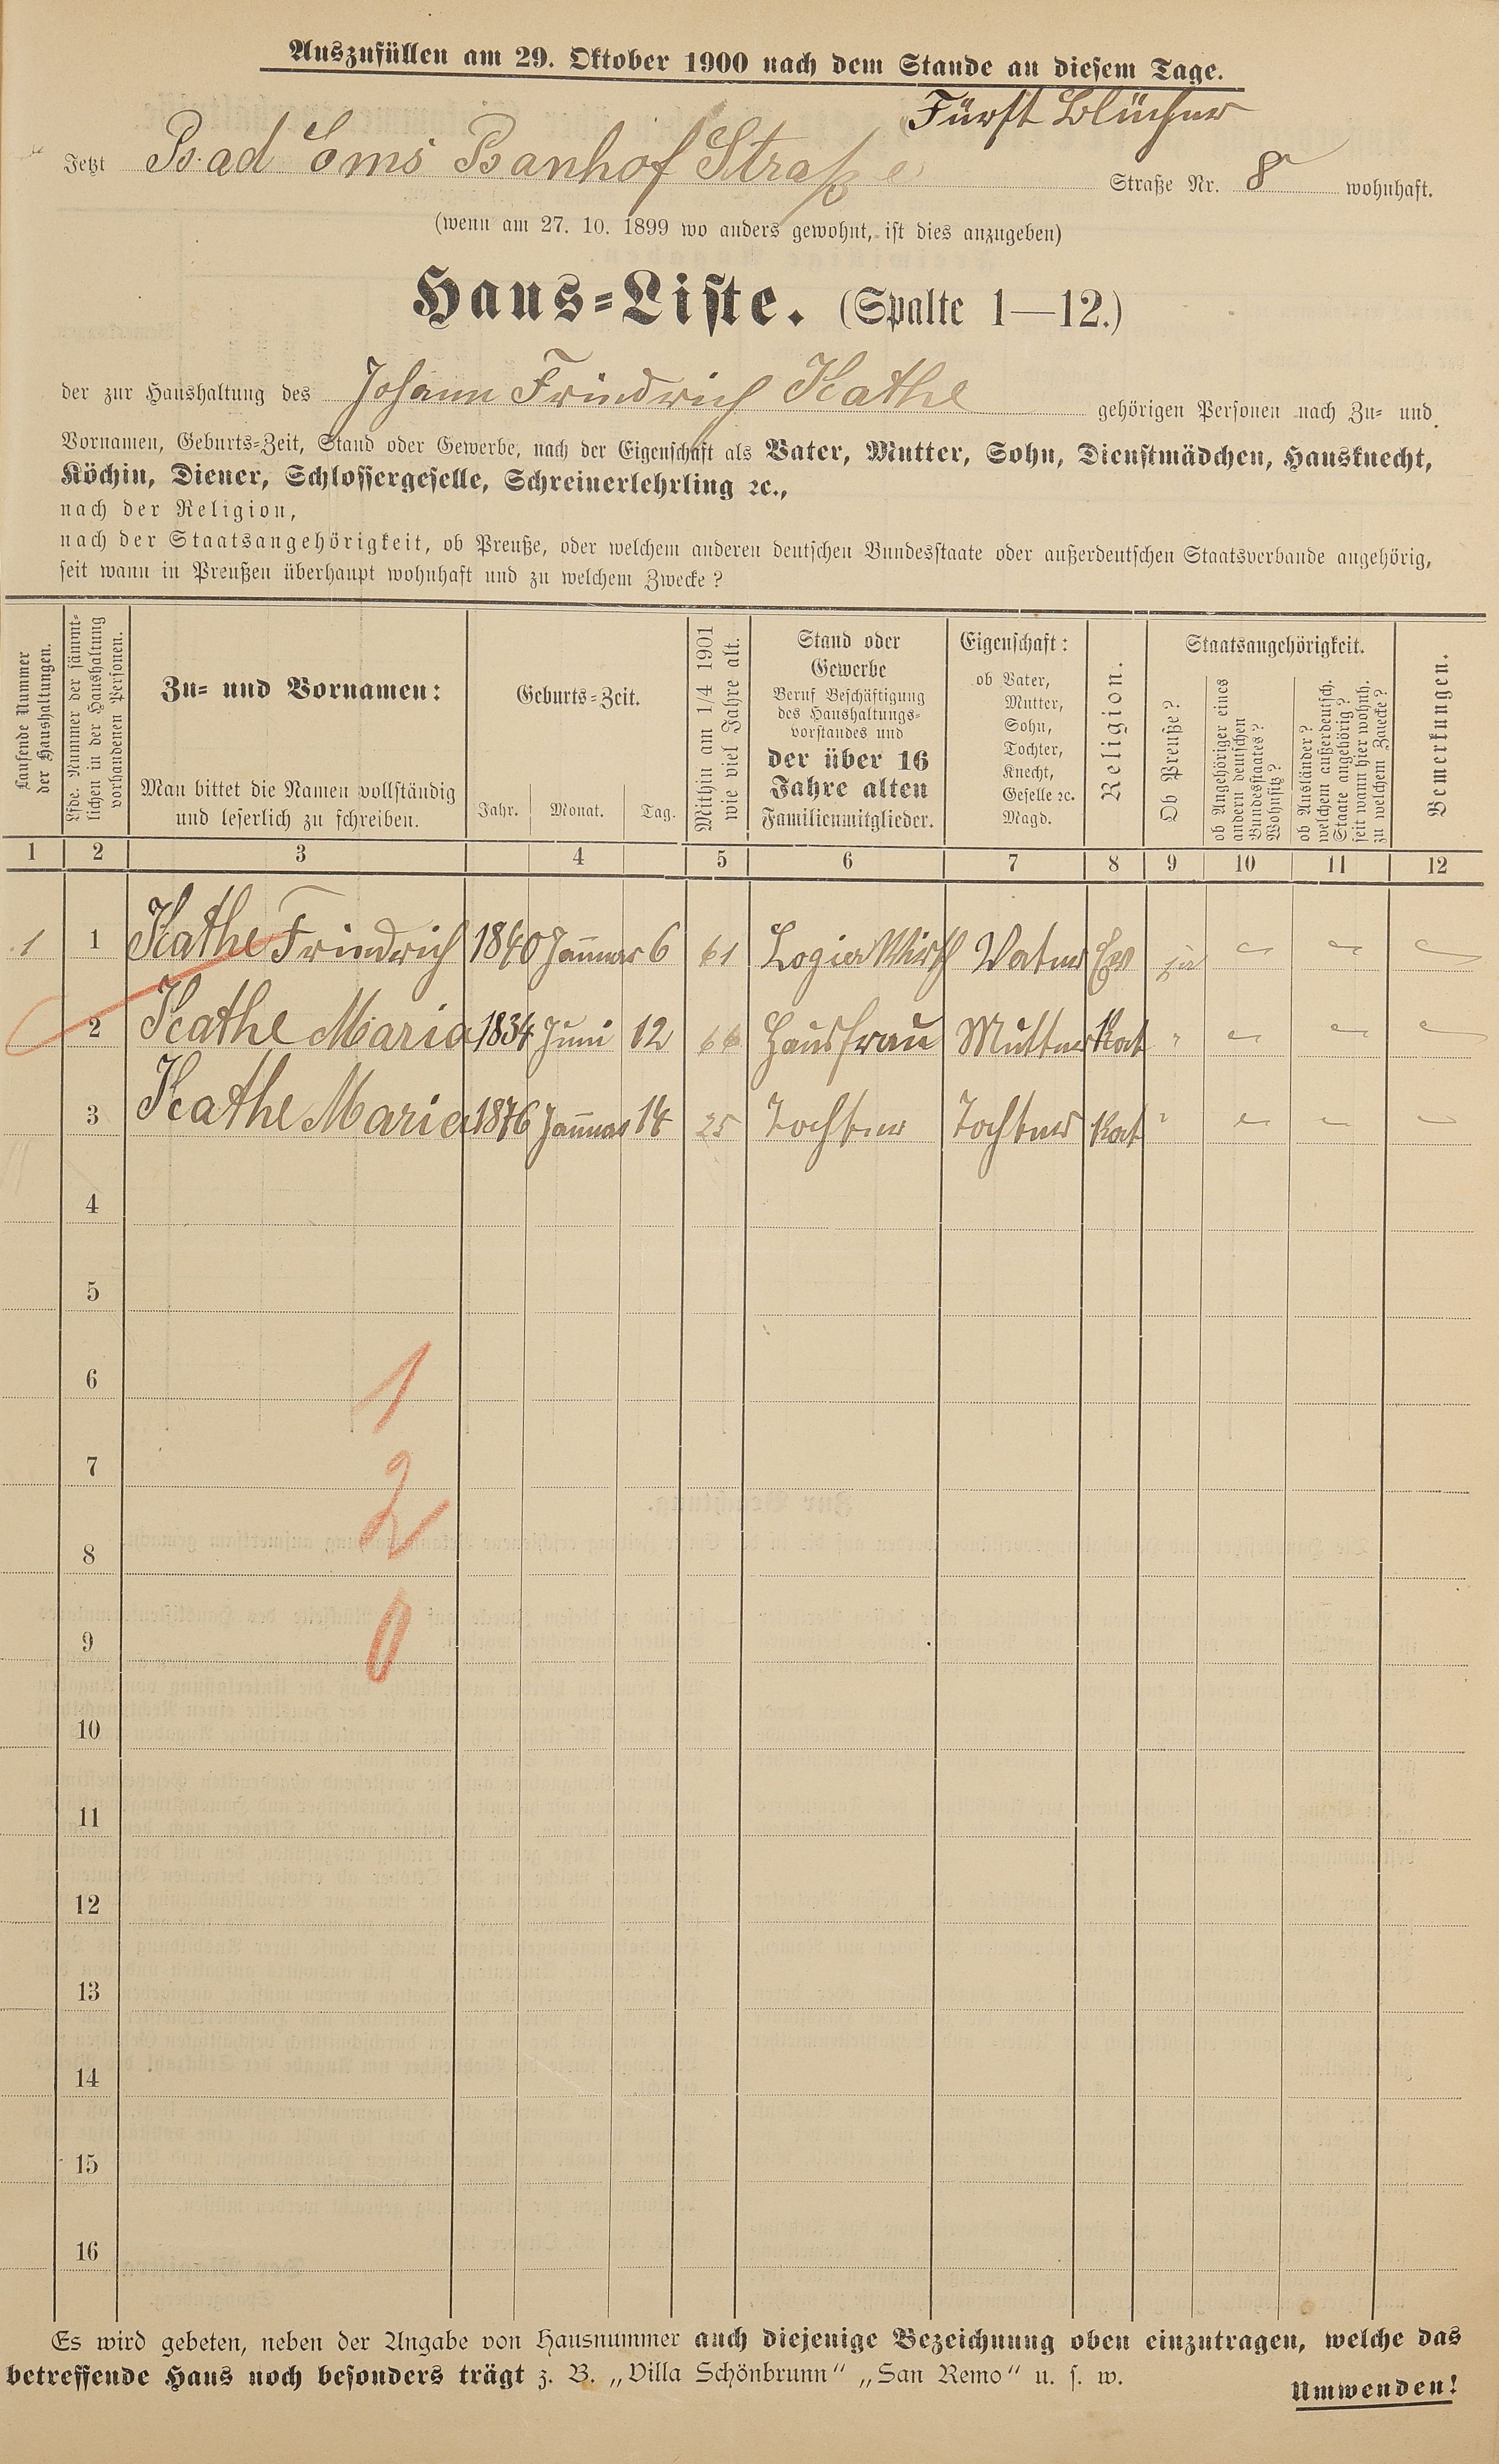 Auszufüllen am 29. Oktober 1900 nach dem Stande an diesem Tage.
Fürst Blücher
Jetzt Bad Ems Banhof Straße Straße Nr. 8 wohnhaft.
(wenn am 27. 10. 1899 wo anders gewohnt, ist dies anzugeben)
Haus=Liste. (Spalte 1—12.)
der zur Haushaltung des Johann Friedrich Kathe gehörigen Personen nach Zu= und
Vornamen, Geburts=Zeit, Stand oder Gewerbe, nach der Eigenschaft als Vater, Mutter, Sohn, Dienstmädchen, Hausknecht,
Köchin, Diener, Schlossergeselle, Schreinerlehrling ꝛc.,
nach der Religion,
nach der Staatsangehörigkeit, ob Preuße, oder welchem anderen deutschen Bundesstaate oder außerdeutschen Staatsverbande angehörig,
seit wann in Preußen überhaupt wohnhaft und zu welchem Zwecke?
Laufende Nummer
der Haushaltungen.
Lfde. Nummer der sämmt=
lichen in der Haushaltung
vorhandenen Personen.
Zu= und Vornamen:
Man bittet die Namen vollständig
und leserlich zu schreiben.
Geburts=Zeit.
Jahr. Monat. Tag.
Mithin am 1/4 1901
wie viel Jahre alt.
Stand oder
Gewerbe
Beruf Beschäftigung
des Haushaltungs=
vorstandes und
der über 16
Jahre alten
Familienmitglieder.
Eigenschaft:
ob Vater,
Mutter,
Sohn,
Tochter,
Knecht,
Geselle ꝛc.
Magd.
Religion.
Staatsangehörigkeit.
Ob Preuße?
ob Angehöriger eines
andern deutschen
Bundesstaates?
Wohnsitz?
ob Ausländer?
welchem außerdeutsch.
Staate angehörig?
seit wann hier wohnh.
zu welchem Zwecke?
Bemerkungen.
1 2 3 4 5 6 7 8 9 10 11 12
1 1 Kathe Friedrich 1840 Januar 6 61 Logier Wirth Vater Ev ja — — —
2 Kathe Maria 1834 Juni 12 66 Hausfrau Mutter Kat " — — —
3 Kathe Maria 1876 Januar 14 25 Tochter Tochter Kat " — — —
4
5
6
1
7
2
8
9
0
10
11
12
13
14
15
16
Es wird gebeten, neben der Angabe von Hausnummer auch diejenige Bezeichnung oben einzutragen, welche das
betreffende Haus noch besonders trägt z. B. „Villa Schönbrunn“ „San Remo“ u. s. w.
Umwenden!